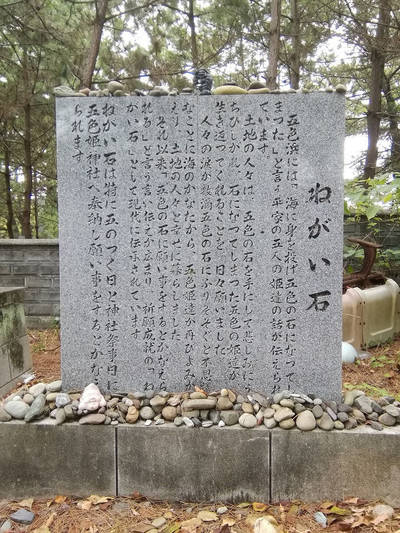 ねがい石
五色浜には「海に身を投げ五色の石になってし
まった」と言う平家の五人の姫達の話が伝えられ
ています。
土地の人々は、五色の石を手にして悲しみにう
ちひしがれ、石になってしまった五色の姫達が
生き返ってくれることを日々願いました。
人々の涙が数滴五色の石にふりそそぐと不思議
なことに海のかなたから、五色姫達が再びよみが
えり、土地の人々と幸せに暮らしました。
それ以来「五色の石に願い事をするとかなえら
れる」と言う言い伝えが広まり、祈願成就の「ね
がい石」として現代に伝承されています。
ねがい石は特に五のつく日と神社祭事日に
五色姫神社へ奉納し願い事をするとかなえ
られます